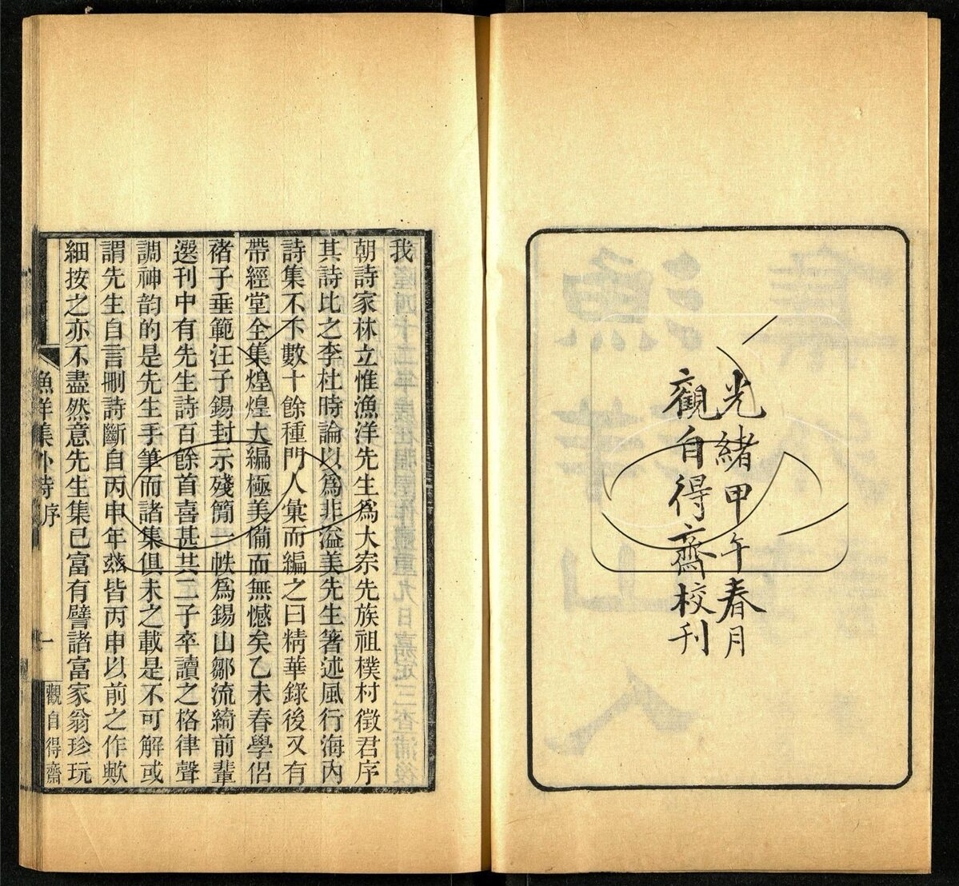 光緒甲午春月
觀自得齋校刊
我
朝詩家林立惟漁洋先生爲大宗先族祖樸村徵君序
其詩比之李杜時論以爲非溢美先生箸述風行海内
詩集不下數十餘種門人彙而編之曰精華錄後又有
帶經堂全集煌煌大編極美備而無憾矣乙未春學侶
褚子垂範汪子錫封示殘簡一帙爲錫山鄒流綺前輩
選刊中有先生詩百餘首喜甚共二子卒讀之格律聲
調神韵的是先生手筆而諸集俱未之載是不可解或
謂先生自言刪詩斷自丙申年茲皆丙申以前之作歟
細按之亦不盡然意先生集已富有譬諸富家翁珍玩
漁洋集外詩 序
一
觀自得齋